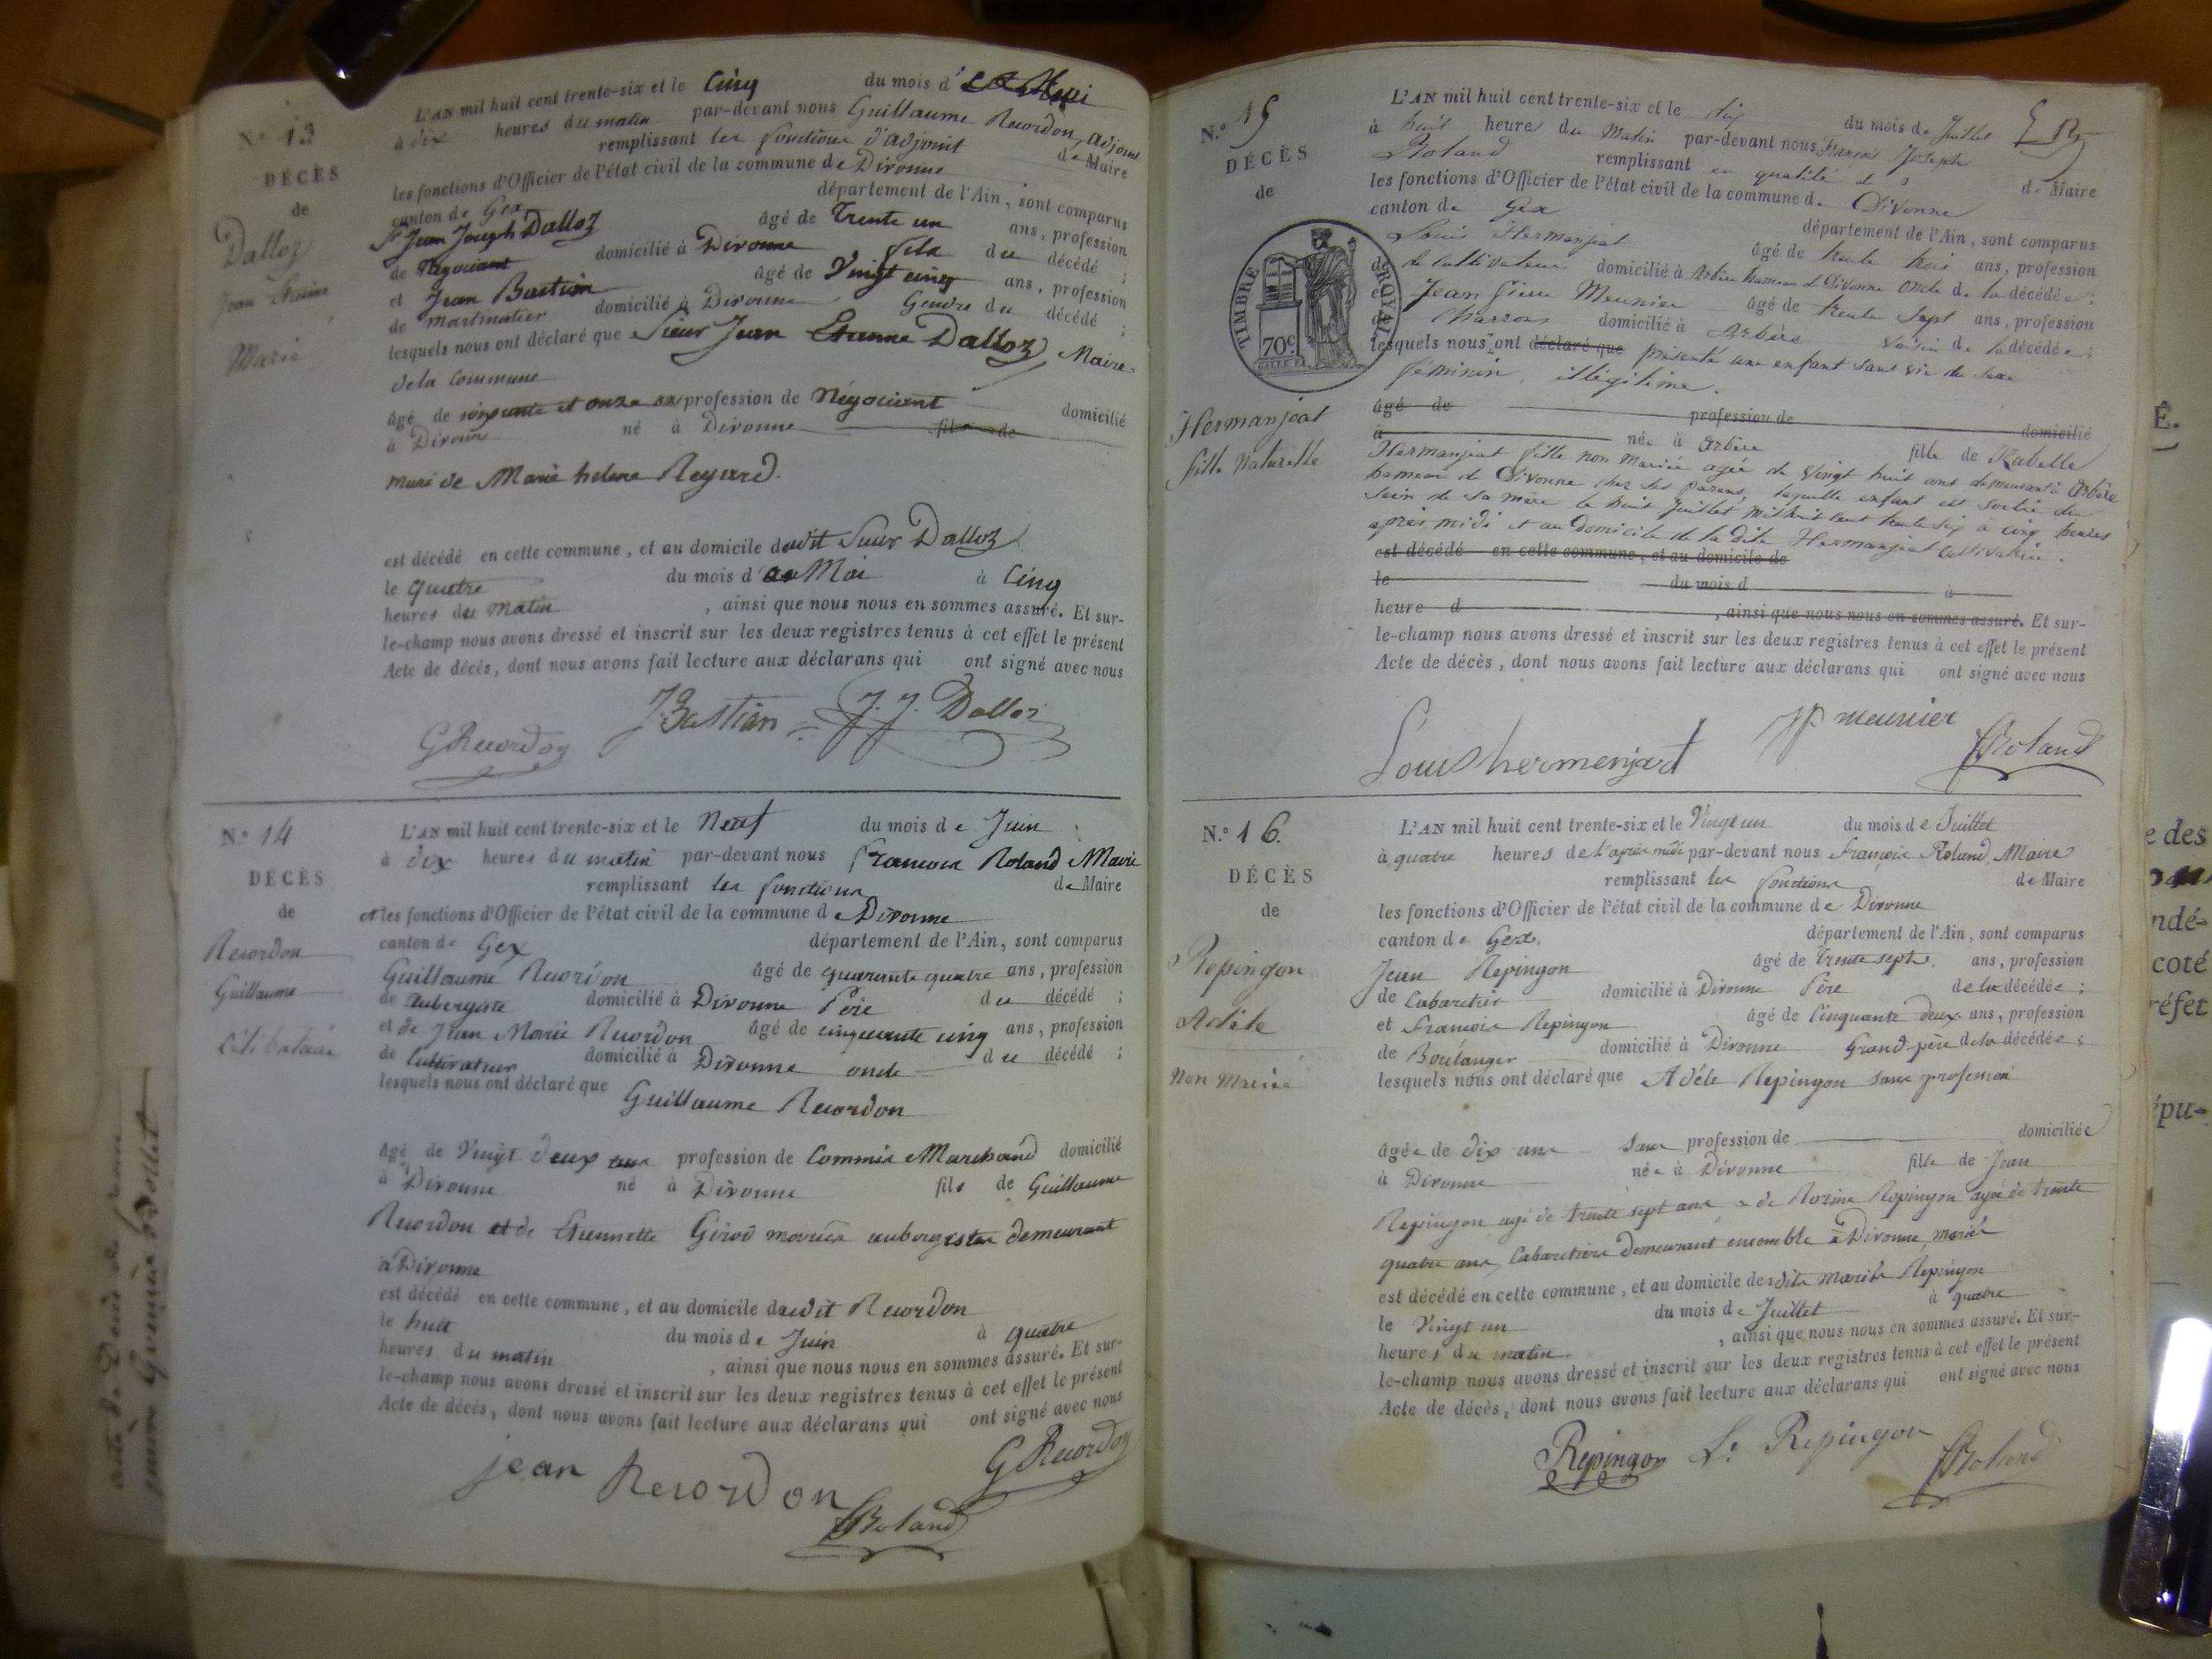 N.º 13
DÉCÈS
de
Dalloz
Jean Etienne
Marié
L'AN mil huit cent trente-six et le Cinq du mois d Mai
à dix heures du matin par-devant nous Guillaume Recordon, adjoint
remplissant les fonctions d'adjoint de Maire
les fonctions d'Officier de l'état civil de la commune de Divonne
canton de Gex département de l'Ain, sont comparus
Jean Joseph Dalloz âgé de Trente un ans, profession
de Négociant domicilié à Divonne fils du décédé ;
et Jean Bastian âgé de Vingt cinq ans, profession
de domicilié à Divonne Gendre du décédé ;
lesquels nous ont déclaré que Sieur Jean Etienne Dalloz, Maire
de la Commune
âgé de soixante et onze ans profession de Négociant domicilié
à Divonne né à Divonne fils de
mari de Marie helene Regard.
est décédé en cette commune, et au domicile dudit Sieur Dalloz
le quatre du mois d Mai à Cinq
heures du matin , ainsi que nous nous en sommes assuré. Et sur-
le-champ nous avons dressé et inscrit sur les deux registres tenus à cet effet le présent
Acte de décès, dont nous avons fait lecture aux déclarans qui ont signé avec nous
GRecordon JBastian J. J. Dalloz
N.º 14
DÉCÈS
de
Recordon
Guillaume
Célibataire
L'AN mil huit cent trente-six et le Neuf du mois de Juin
à dix heures du matin par-devant nous François Roland Maire
remplissant les fonctions de Maire
et les fonctions d'Officier de l'état civil de la commune de Divonne
canton de Gex département de l'Ain, sont comparus
Guillaume Recordon âgé de quarante quatre ans, profession
de aubergiste domicilié à Divonne Père du décédé ;
et de Jean Marie Recordon âgé de cinquante cinq ans, profession
de Cultivateur domicilié à Divonne oncle du décédé ;
lesquels nous ont déclaré que Guillaume Recordon
âgé de Vingt deux ans profession de Commis Marchand domicilié
à Divonne né à Divonne fils de Guillaume
Recordon et de Etiennette Girod mariés aubergistes demeurant
à Divonne
est décédé en cette commune, et au domicile dudit Recordon
le huit du mois de Juin à quatre
heures du matin , ainsi que nous nous en sommes assuré. Et sur-
le-champ nous avons dressé et inscrit sur les deux registres tenus à cet effet le présent
Acte de décès, dont nous avons fait lecture aux déclarans qui ont signé avec nous
jean Recordon G Recordon
FRoland
N.º 15
DÉCÈS
de
TIMBRE ROYAL
70c
Hermanjeat
fille Naturelle
L'AN mil huit cent trente-six et le dix du mois de Juillet
à huit heures du Matin par-devant nous François Joseph
Roland remplissant en qualité de Maire
les fonctions d'Officier de l'état civil de la commune de Divonne
canton de Gex département de l'Ain, sont comparus
Louis Hermanjeat âgé de trente trois ans, profession
de Cultivateur domicilié à Arbère hameau de Divonne oncle de la décédée ;
Jean Pierre Meunier âgé de trente Sept ans, profession
Charron domicilié à Arbère voisin de la décédée ;
lesquels nous ont déclaré que présenté une enfant sans vie du sexe
féminin, illégitime.
âgé de profession de domicilié
à née à Arbère fille de Isabelle
Hermanjeat fille non Mariée agée de Vingt huit ans demeurant à Arbère
hameau de Divonne chez ses parens, laquelle enfant est sortie du
sein de sa mère le huit Juillet mil huit cent trente six à cinq heures
après midi et au Domicile de la dite Hermanjeat Cultivatrice.
est décédé en cette commune, et au domicile de
le du mois d à
heure d , ainsi que nous nous en sommes assuré. Et sur-
le-champ nous avons dressé et inscrit sur les deux registres tenus à cet effet le présent
Acte de décès, dont nous avons fait lecture aux déclarans qui ont signé avec nous
Louis hermenjart JP meunier FRoland
N.º 16.
DÉCÈS
de
Repingon
Adèle
Non Mariée
L'AN mil huit cent trente-six et le Vingt un du mois de Juillet
à quatre heures de l'après midi par-devant nous François Roland, Maire
remplissant les fonctions de Maire
les fonctions d'Officier de l'état civil de la commune de Divonne
canton de Gex, département de l'Ain, sont comparus
Jean Repingon âgé de trente sept ans, profession
de Cabaretier domicilié à Divonne Père de la décédée ;
et François Repingon âgé de Cinquante deux ans, profession
de Boulanger domicilié à Divonne Grand père de la décédée ;
lesquels nous ont déclaré que Adèle Repingon sans profession
âgée de dix ans sans profession de domiciliée
à Divonne née à Divonne fille de Jean
Repingon agé de trente sept ans & de Rosine Repingon agée de trente
quatre ans, Cabaretiers demeurant ensemble à Divonne, mariés
est décédé en cette commune, et au domicile desdits mariés Repingon
le Vingt un du mois de Juillet à quatre
heures du matin , ainsi que nous nous en sommes assuré. Et sur-
le-champ nous avons dressé et inscrit sur les deux registres tenus à cet effet le présent
Acte de décès, dont nous avons fait lecture aux déclarans qui ont signé avec nous
Repingon Repingon FRoland
É.
e des
ndé-
coté
réfet
épu-